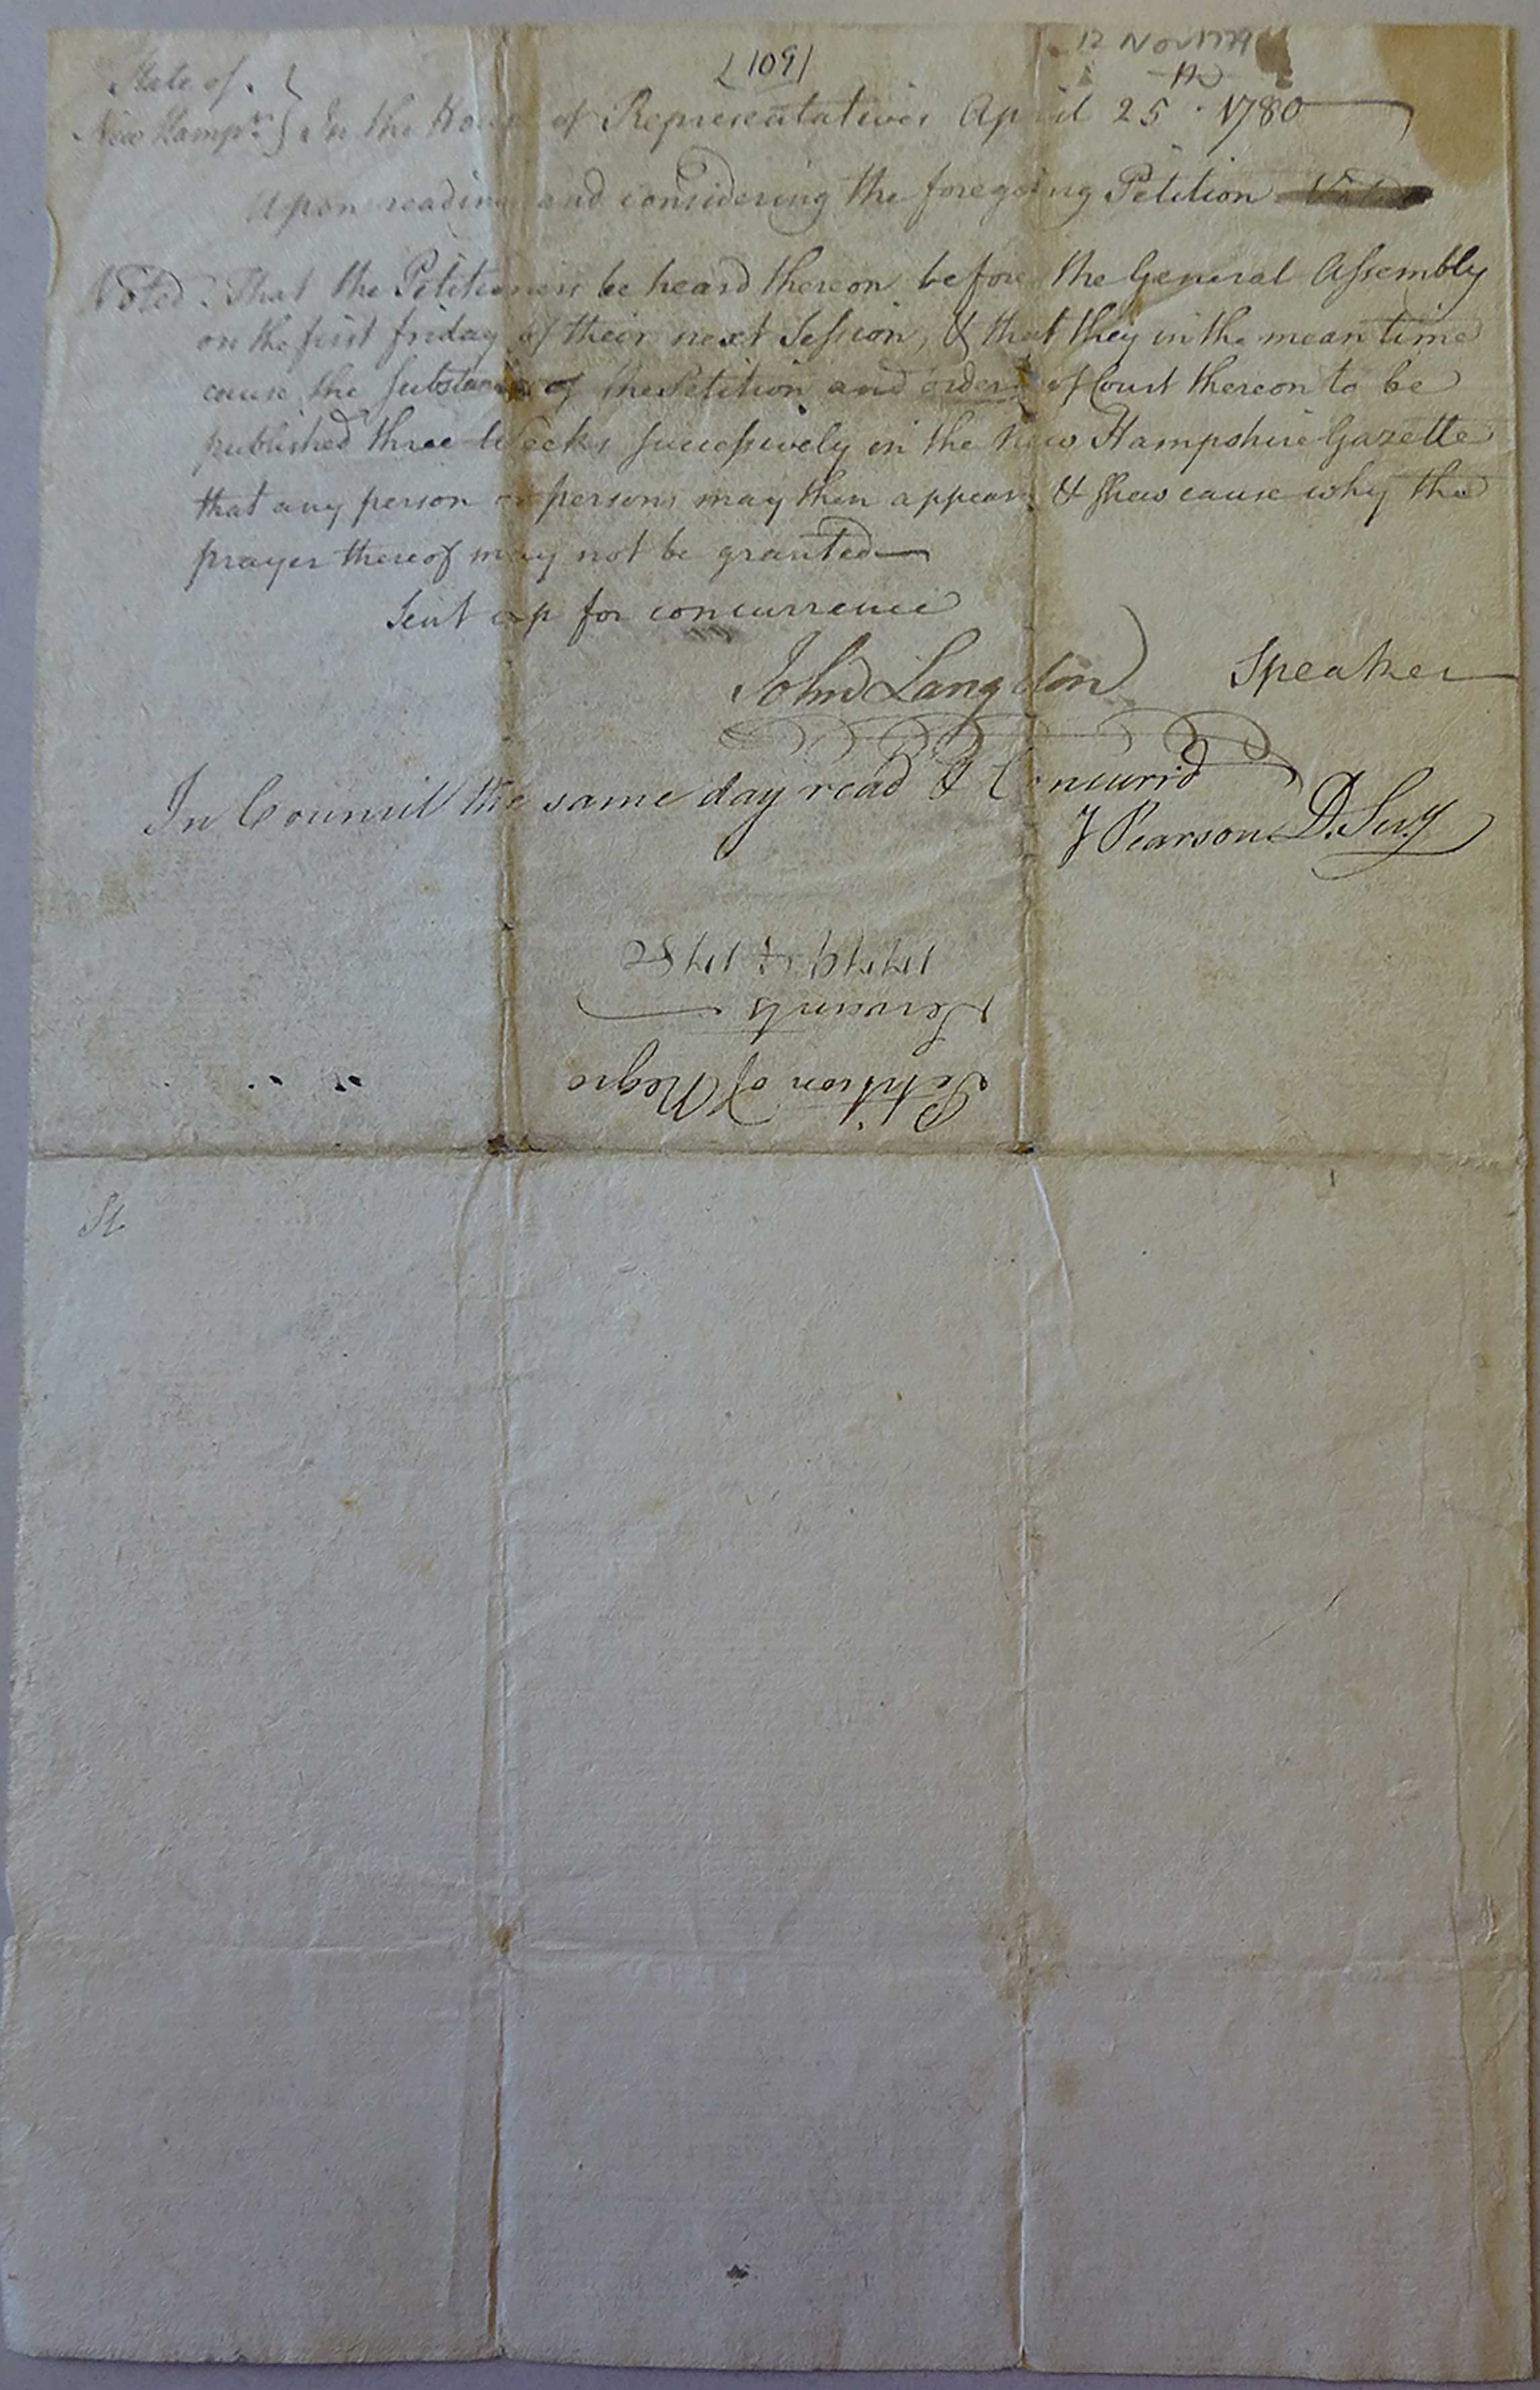 [109]
12 Nov 1779
State of
New Hampr } In the House of Representatives April 25 . 1780
Upon reading and considering the foregoing Petition
Voted. That the Petitioners be heard thereon before the General Assembly
on the first friday of their next Session, & that they in the mean time
cause the Substance of the Petition and order of Court thereon to be
published three Weeks successively in the New Hampshire Gazette
that any person or persons may then appear & shew cause why the
prayer thereof may not be granted
Sent up for concurrence
John Langdon Speaker
In Council the same day read & Concurrid
J Pearson D. Secy
Petition of Negro
Servants
1779 & 1780
St